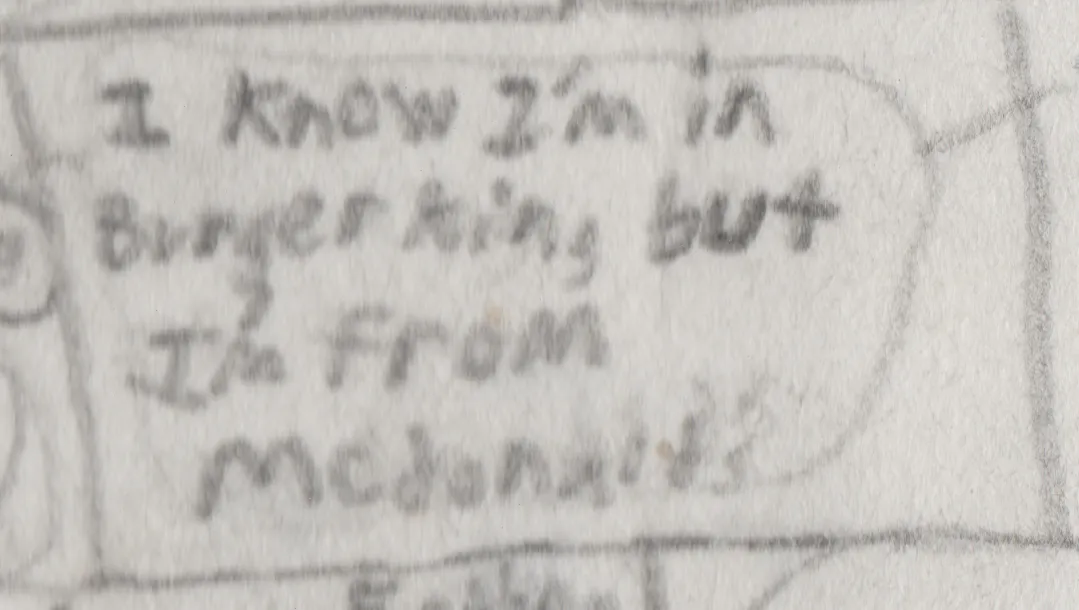 I Know I'm in
Burger King but
I'm From
Mcdonald's